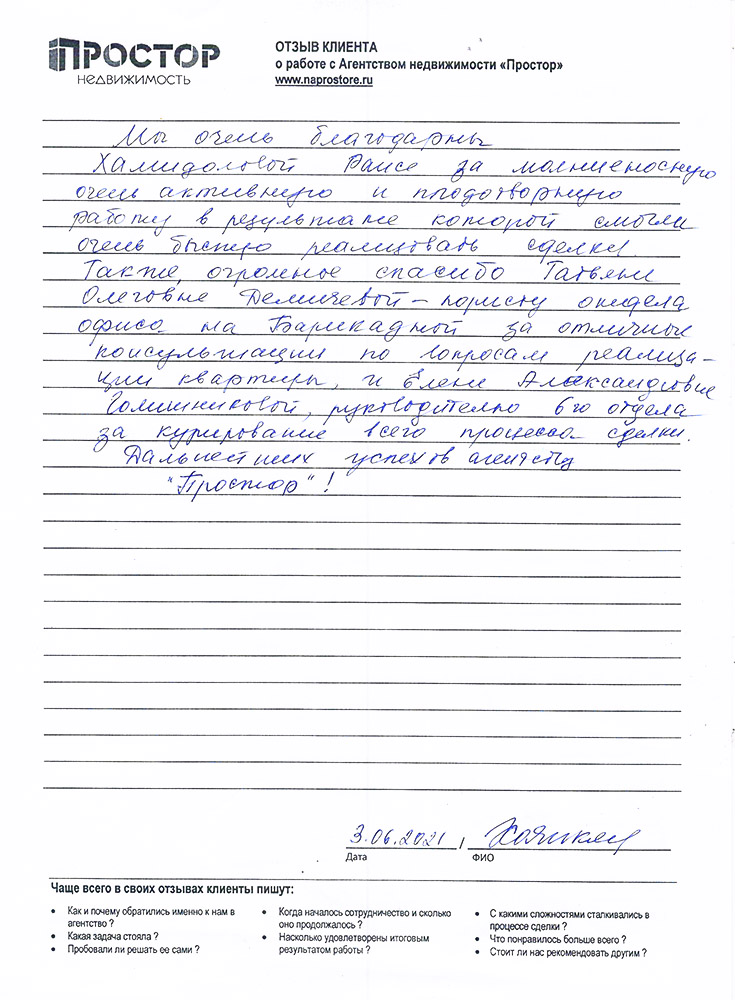 ПРОСТОР
НЕДВИЖИМОСТЬ
ОТЗЫВ КЛИЕНТА
о работе с Агентством недвижимости «Простор»
www.naprostore.ru
Мы очень благодарны
Хамидоловой Раисе за молниеносную
очень активную и плодотворную
работу в результате которой смогли
очень быстро реализовать сделку.
Также, огромное спасибо Татьяне
Олеговне Демичевой – юристу отдела
офиса на Барикадной за отличные
консультации по вопросам реализа-
ции квартиры, и Елене Александровне
Голишниковой, руководителю 6го отдела
за курирование всего процесса сделки.
Дальнейших успехов агенству
"Простор"!
3.06.2021 /
Дата ФИО
Чаще всего в своих отзывах клиенты пишут:
• Как и почему обратились именно к нам в
агентство ?
• Какая задача стояла ?
• Пробовали ли решать ее сами ?
• Когда началось сотрудничество и сколько
оно продолжалось ?
• Насколько удовлетворены итоговым
результатом работы ?
• С какими сложностями сталкивались в
процессе сделки ?
• Что понравилось больше всего ?
• Стоит ли нас рекомендовать другим ?